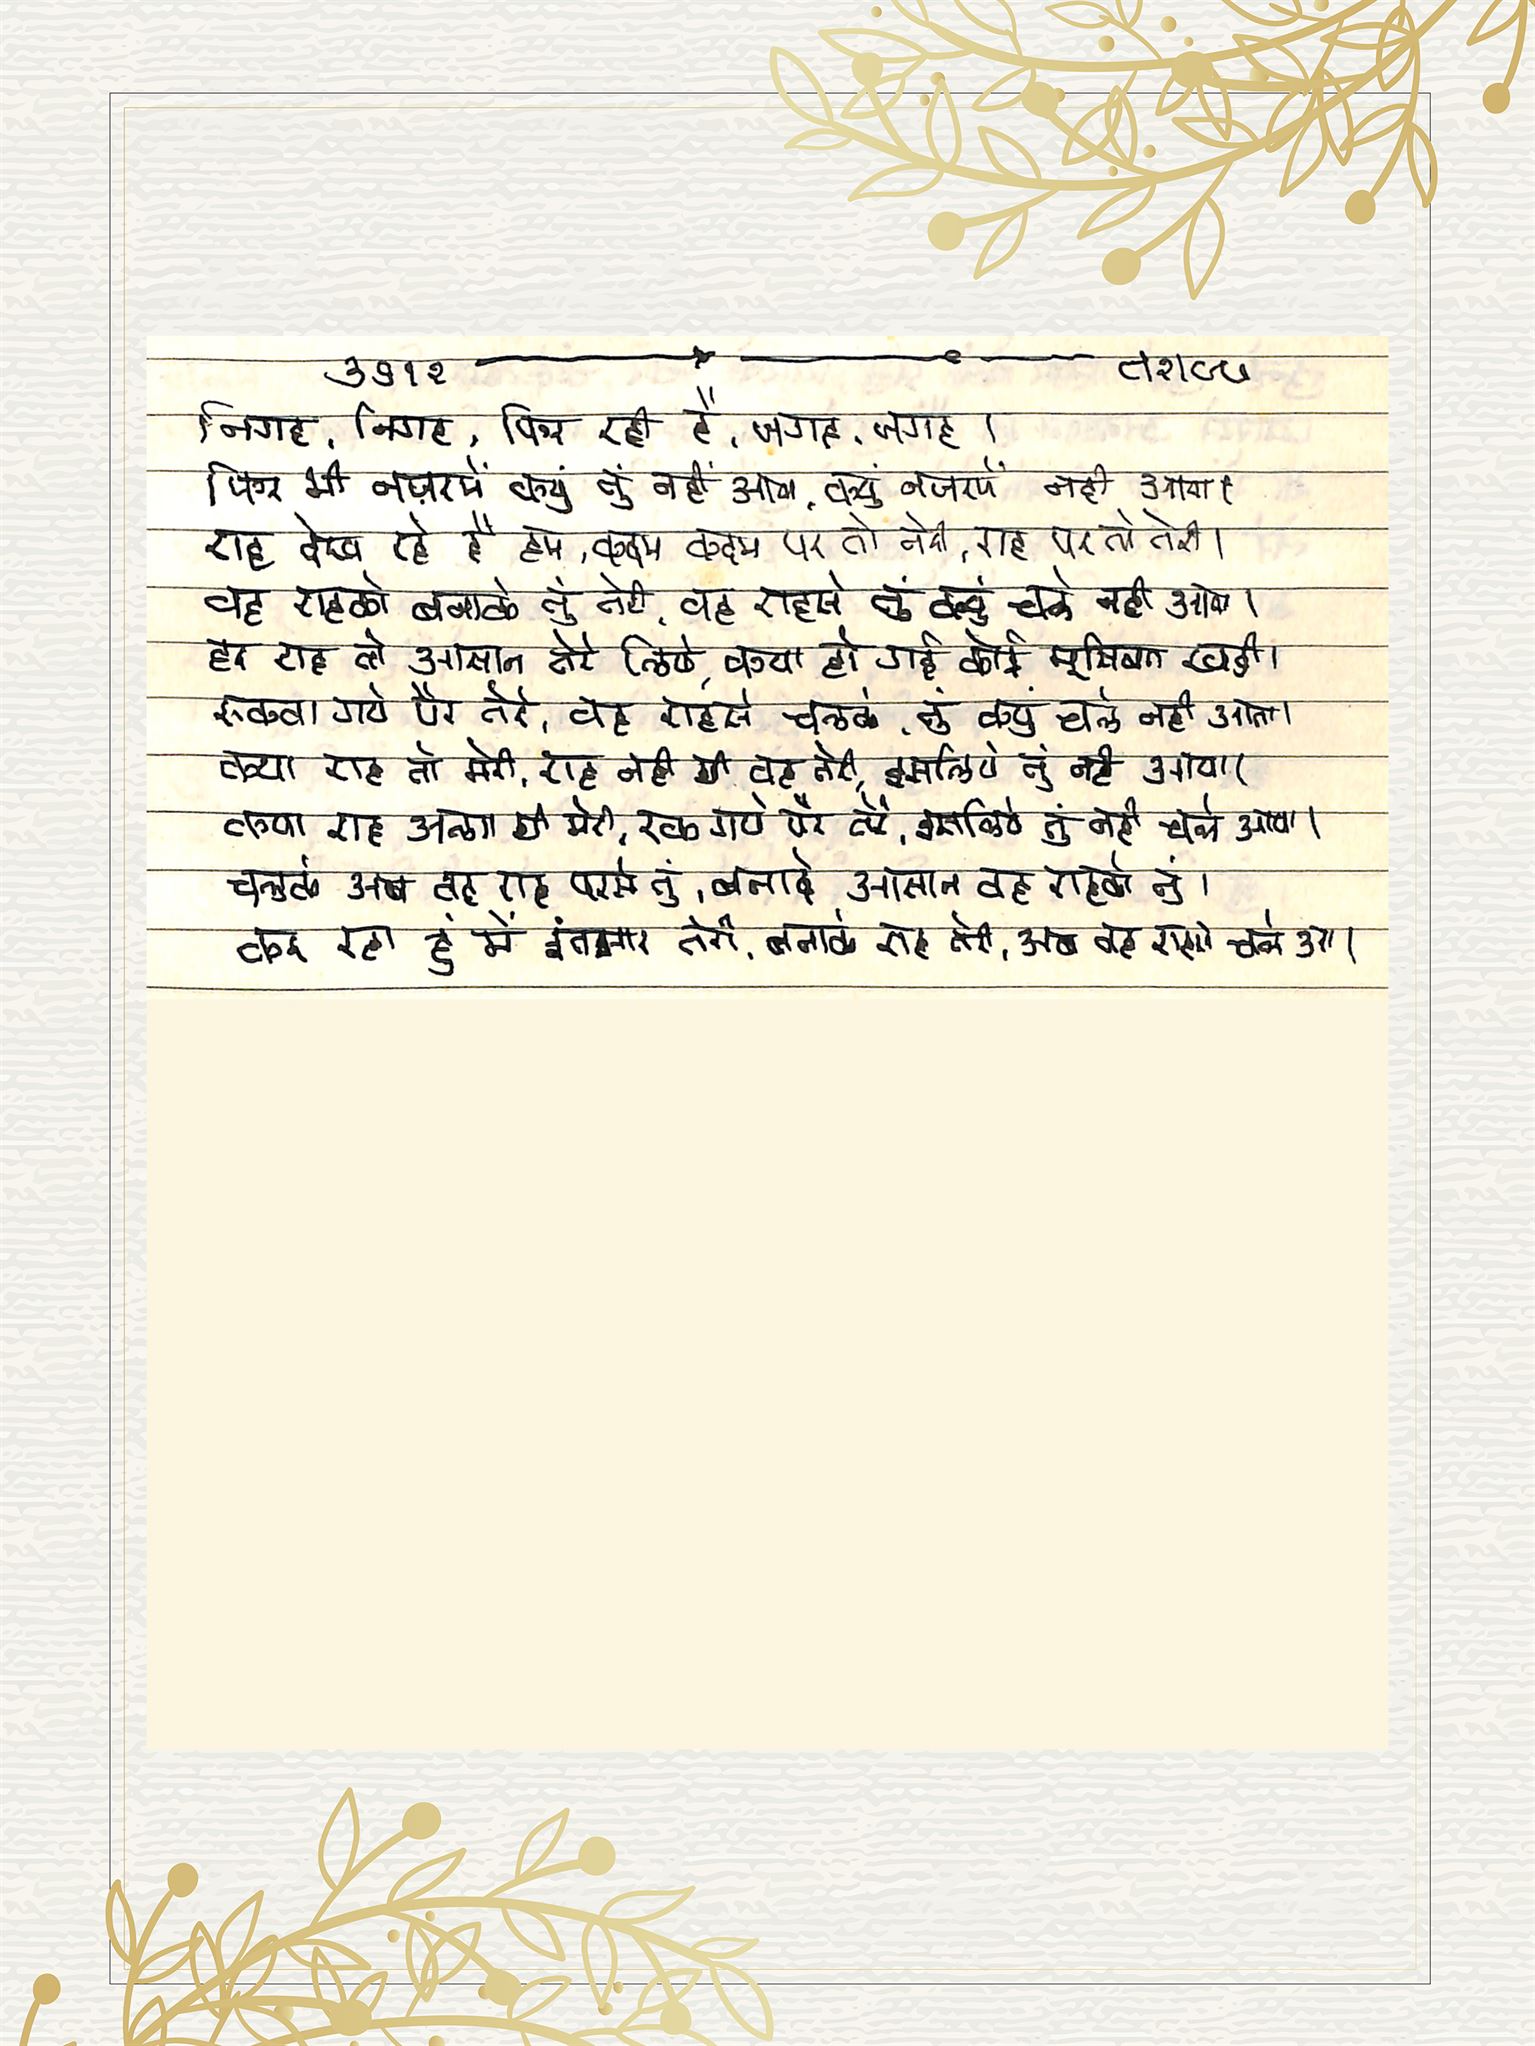 ३९१२
निगाह, निगाह, फिर रही हैं, जगह, जगह ।
फिर भी नज़रमें क्युं तुं नहीं आया, क्युं नजरमें नही आया।
राह देख रहे हैं हम, कदम कदम पर तो तेरी, राह पर तो तेरी।
वह राहको बनाके तुं तेरी, वह राहसे तुं क्युं चले नही आया।
हर राह तो आसान तेरे लिये, क्या हो गई कोई मूसिबत खड़ी।
रुकवा गये पैर तेरे, वह राहसे चलके, तुं क्युं चले नही आता।
क्या राह तो मेरी, राह नही थी वह तेरी, इसलिये तुं नही आया।
क्या राह अलग थी मेरी, रुक गये पैर तेरे, इसलिये तुं नही चले आया।
चलके अब वह राह परसे तुं, बनादे आसान वह राहको तुं ।
कर रहा हुं में इंतजार तेरी, बनाके राह तेरी, अब वह राहसे चले आ।